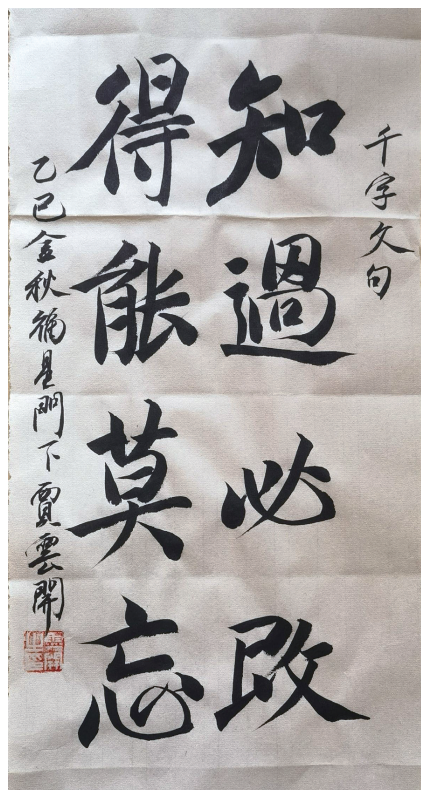 千字文句
知過必改
得能莫忘
乙巳金秋福星門下賈雲開